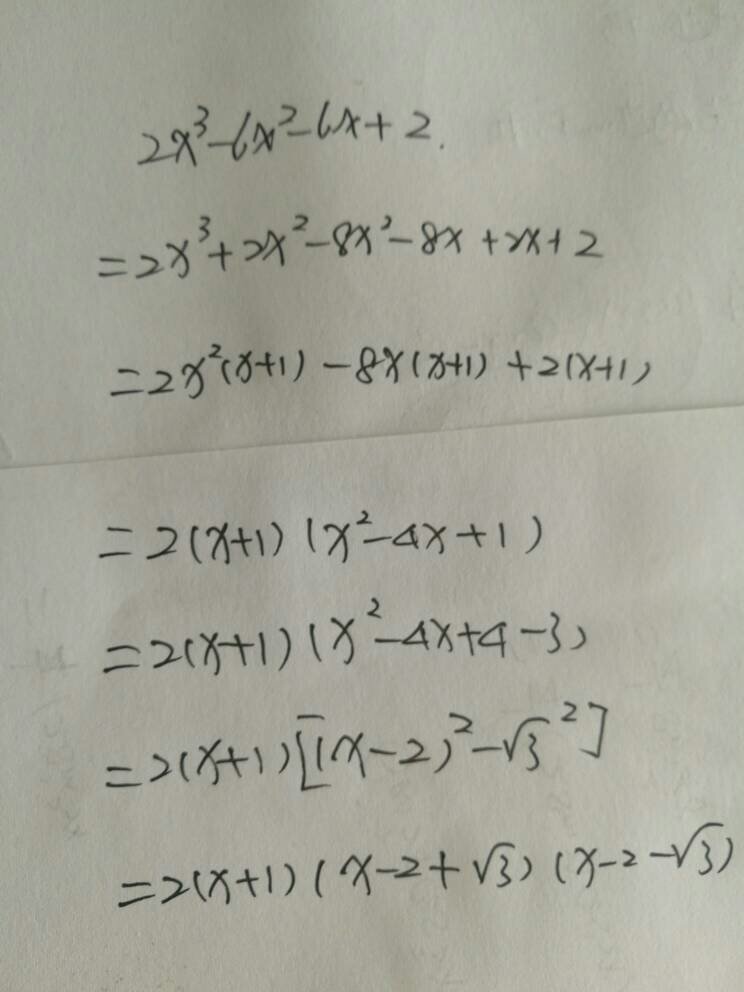 2x³-6x²-6x+2.
=2x³+2x²-8x²-8x+2x+2
=2x²(x+1)-8x(x+1)+2(x+1)
=2(x+1)(x²-4x+1)
=2(x+1)(x²-4x+4-3)
=2(x+1)[(x-2)²-√3²]
=2(x+1)(x-2+√3)(x-2-√3)